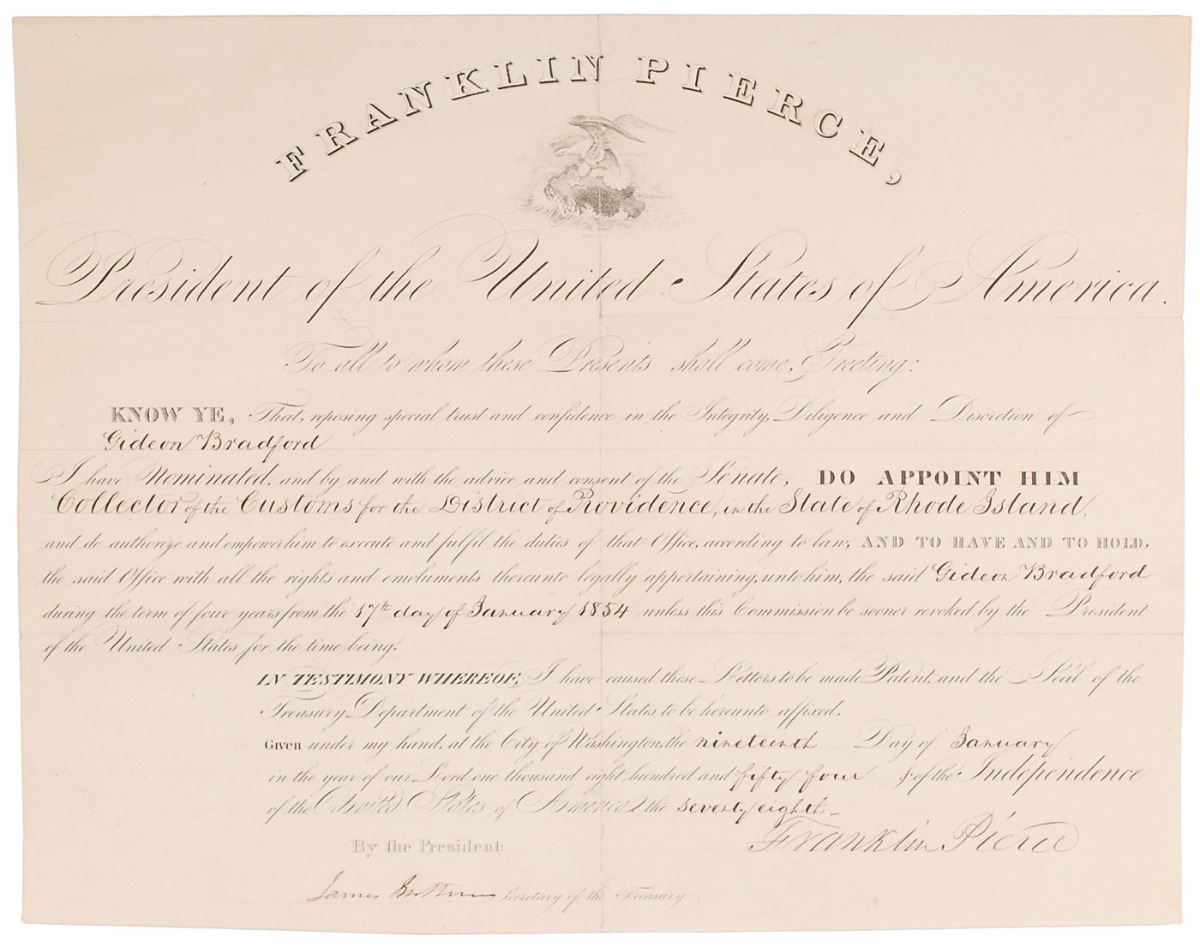 FRANKLIN PIERCE,
President of the United States of America.
To all to whom these Presents shall come, Greeting:
KNOW YE, That, reposing special trust and confidence in the Integrity, Diligence and Discretion of
Gideon Bradford
I have Nominated, and by and with the advice and consent of the Senate, DO APPOINT HIM
Collector of the Customs for the District of Providence, in the State of Rhode Island,
and do authorize and empower him to execute and fulfil the duties of that Office, according to law; AND TO HAVE AND TO HOLD,
the said Office with all the rights and emoluments thereunto legally appertaining, unto him, the said Gideon Bradford
during the term of four years from the 17th day of January 1854 unless this Commission be sooner revoked by the President
of the United States for the time being.
IN TESTIMONY WHEREOF, I have caused these Letters to be made Patent, and the Seal of the
Treasury Department of the United States to be hereunto affixed.
Given under my hand, at the City of Washington, the nineteenth Day of January
in the year of our Lord one thousand eight hundred and fifty four & of the Independence
of the United States of America, the seventy eighth
Franklin Pierce
By the President:
James Guthrie Secretary of the Treasury